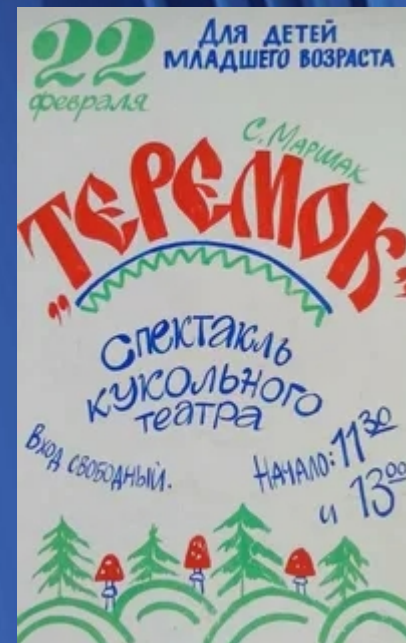 22
февраля
Для детей
младшего возраста
С. Маршак
„Теремок"
Спектакль
кукольного
театра
Вход свободный.
Начало: 11³⁰
и 13⁰⁰